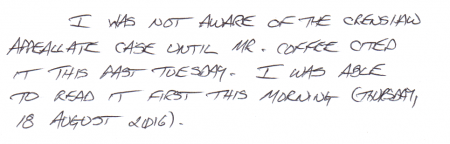 I WAS NOT AWARE OF THE CRENSHAW
APPEALLATE CASE UNTIL MR. COFFEE CITED
IT THIS PAST TUESDAY. I WAS ABLE
TO READ IT FIRST THIS MORNING (THURSDAY,
18 AUGUST 2016).